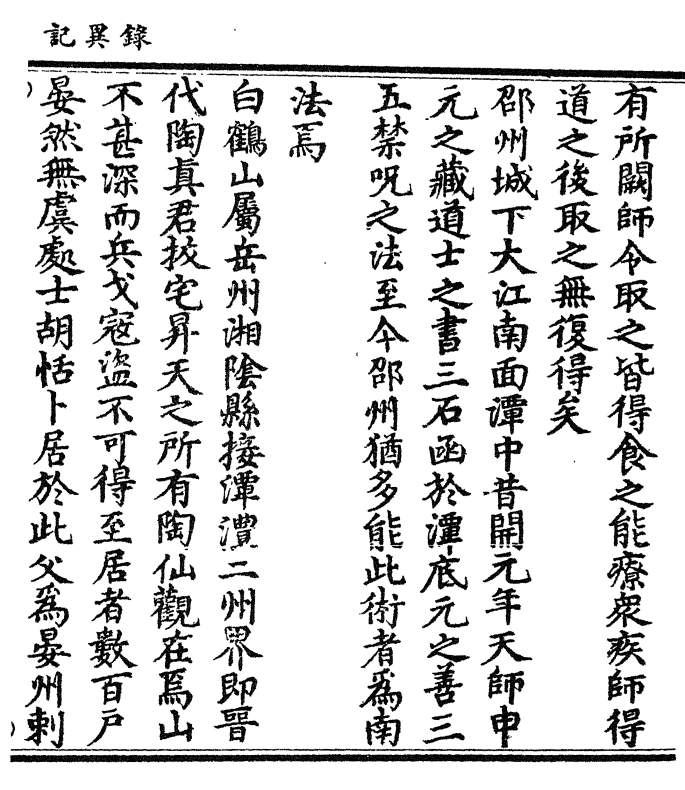 錄異記
有所闕師令取之皆得食之能療衆疾師得
道之後取之無復得矣
邵州城下大江南面潭中昔開元年天師申
元之藏道士之書三石函於潭底元之善三
五禁呪之法至今邵州猶多能此術者爲南
法焉
白鶴山屬岳州湘陰縣接潭澧二州界即晉
代陶真君抜宅昇天之所有陶仙觀在焉山
不甚深而兵戈寇盜不可得至居者數百戶
晏然無虞處士胡恬卜居於此父爲晏州刺